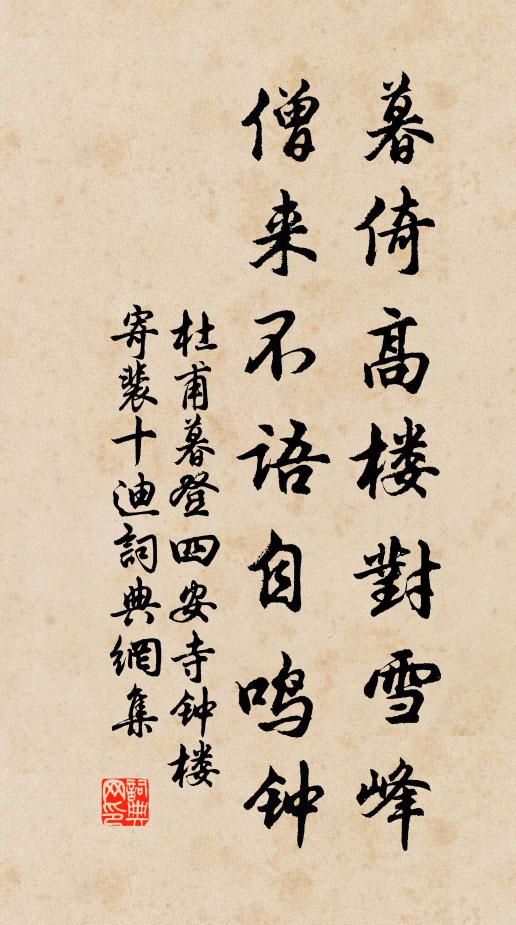 暮倚高楼對雪峰
僧来不语自鸣钟
杜甫暮登四安寺钟楼
寄裴十迪詞典網集
詞典
网印